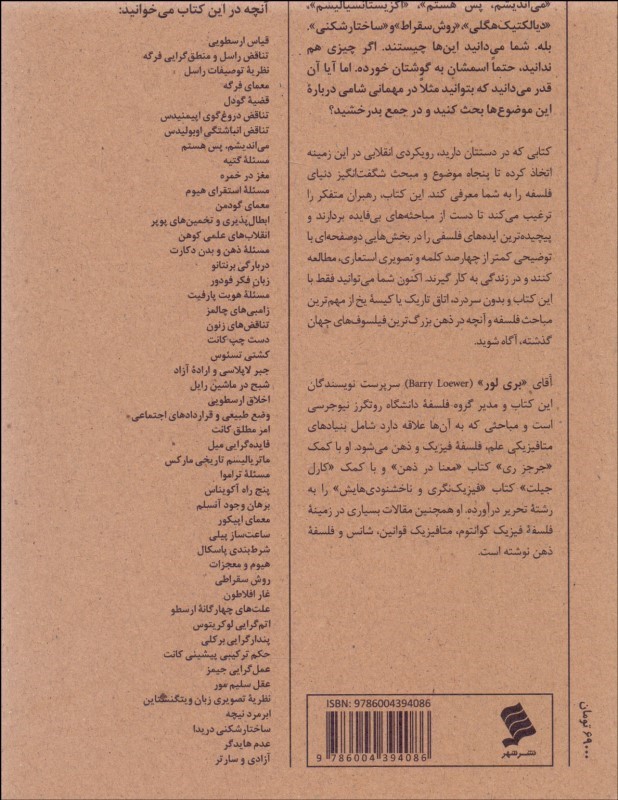 «می‌اندیشم، پس هستم»، «اگزیستانسیالیسم»،
«دیالکتیک هگلی»، «روش سقراط» و «ساختارشکنی».
بله. شما می‌دانید این‌ها چیستند. اگر چیزی هم
ندانید، حتماً اسمشان به گوشتان خورده. اما آیا آن
قدر می‌دانید که بتوانید مثلا در مهمانی شامی دربارهٔ
این موضوع‌ها بحث کنید و در جمع بدرخشید؟
کتابی که در دستتان دارید، رویکردی انقلابی در این زمینه
اتخاذ کرده تا پنجاه موضوع و مبحث شگفت‌انگیز دنیای
فلسفه را به شما معرفی کند. این کتاب، رهبران متفکر را
ترغیب می‌کند تا دست از مباحثه‌های بی‌فایده بردارند و
پیچیده‌ترین ایده‌های فلسفی را در بخش‌هایی دوصفحه‌ای با
توضیحی کمتر از چهارصد کلمه و تصویری استعاری، مطالعه
کنند و در زندگی به کار گیرند. اکنون شما می‌توانید فقط با
این کتاب و بدون سردرد، اتاق تاریک یا کیسهٔ یخ از مهم‌ترین
مباحث فلسفه و آنچه در ذهن بزرگ‌ترین فیلسوف‌های جهان
گذشته، آگاه شوید.
آقای «بری لور» (Barry Loewer) سرپرست نویسندگان
این کتاب و مدیر گروه فلسفهٔ دانشگاه روتگرز نیوجرسی
است و مباحثی که به آن‌ها علاقه دارد شامل بنیادهای
متافیزیکی علم، فلسفهٔ فیزیک و ذهن می‌شود. او با کمک
«جرجز ری» کتاب «معنا در ذهن» و با کمک «کارل
جیلت» کتاب «فیزیک‌نگری و ناخشنودی‌هایش» را به
رشتهٔ تحریر درآورده. او همچنین مقالات بسیاری در زمینهٔ
فلسفهٔ فیزیک کوانتوم، متافیزیک قوانین، شانس و فلسفهٔ
ذهن نوشته است.
آنچه در این کتاب می‌خوانید:
قیاس ارسطویی
تناقض راسل و منطق‌گرایی فرگه
نظریهٔ توصیفات راسل
معمای فرگه
قضیهٔ گودل
تناقض دروغ‌گوی اپیمنیدس
تناقض انباشتگی اوبولیدس
می‌اندیشم، پس هستم
مسئلهٔ گتیه
مغز در خمره
مسئلهٔ استقرای هیوم
معمای گودمن
ابطال‌پذیری و تخمین‌های پوپر
انقلاب‌های علمی کوهن
مسئلهٔ ذهن و بدن دکارت
دربارگی برنتانو
زبان فکر فودور
مسئلهٔ هویت پارفیت
زامبی‌های چالمرز
تناقض‌های زنون
دست چپ کانت
کشتی تسئوس
جبر لاپلاسی و ارادهٔ آزاد
شبح در ماشین رایل
اخلاق ارسطویی
وضع طبیعی و قراردادهای اجتماعی
امر مطلق کانت
فایده‌گرایی میل
ماتریالیسم تاریخی مارکس
مسئلهٔ تراموا
پنج راه آکویناس
برهان وجود آنسلم
معمای اپیکور
ساعت‌ساز پیلی
شرط‌بندی پاسکال
هیوم و معجزات
روش سقراطی
غار افلاطون
علت‌های چهارگانهٔ ارسطو
اتم‌گرایی لوکریتوس
پندارگرایی برکلی
حکم ترکیبی پیشینی کانت
عمل‌گرایی جیمز
عقل سلیم مور
نظریهٔ تصویری زبان ویتگنشتاین
ابرمرد نیچه
ساختارشکنی دریدا
عدم هایدگر
آزادی و سارتر
ISBN: 9786004394086
9 786004 394086
نشر شهر
۶۹۰۰۰ تومان